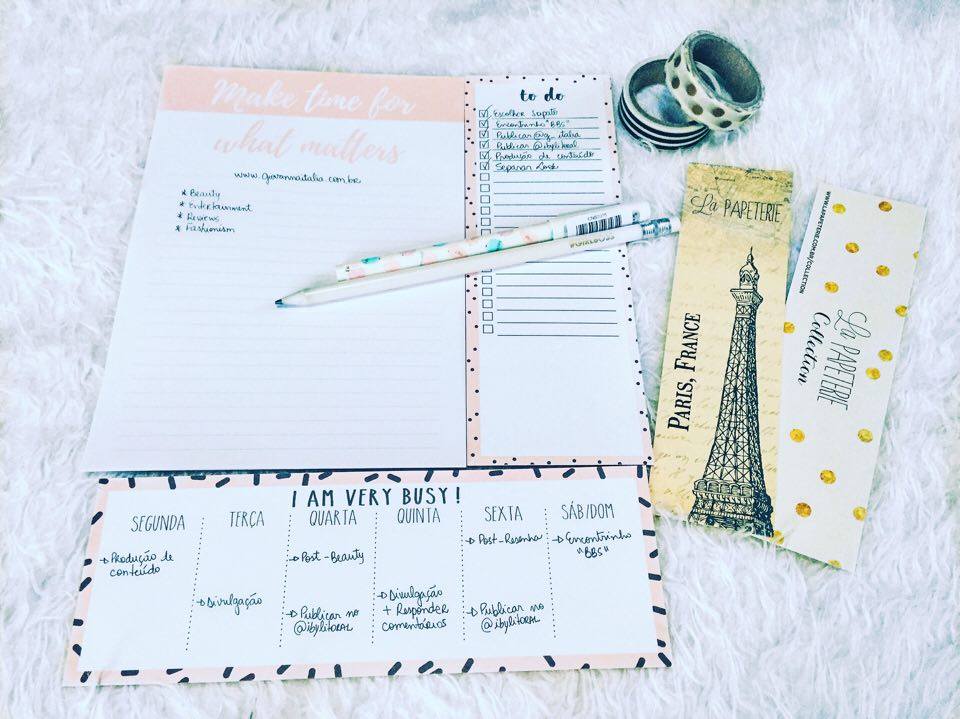 Make time for
what matters
www.giovannaitalia.com.br
* Beauty
* Entertainment
* Reviews
* Fashionism
to do
Escolher sapato
Encontrinho "BBS"
Publicar @g_italia
Publicar @ibylitoral
Produção de conteúdo
Separar Look
#GIRLBOSS
La PAPETERIE
PARIS, FRANCE
WWW.LAPAPETERIE.COM.BR/COLLECTION
La PAPETERIE
Collection
I AM VERY BUSY!
SEGUNDA
→ Produção de
conteúdo
TERÇA
→ Divulgação
QUARTA
→ Post-Beauty
→ Publicar no
@ibylitoral
QUINTA
→ Divulgação
+ Responder
comentários
SEXTA
→ Post-Resenha
→ Publicar no
@ibylitoral
SÁB/DOM
→ Encontrinho
"BBS"